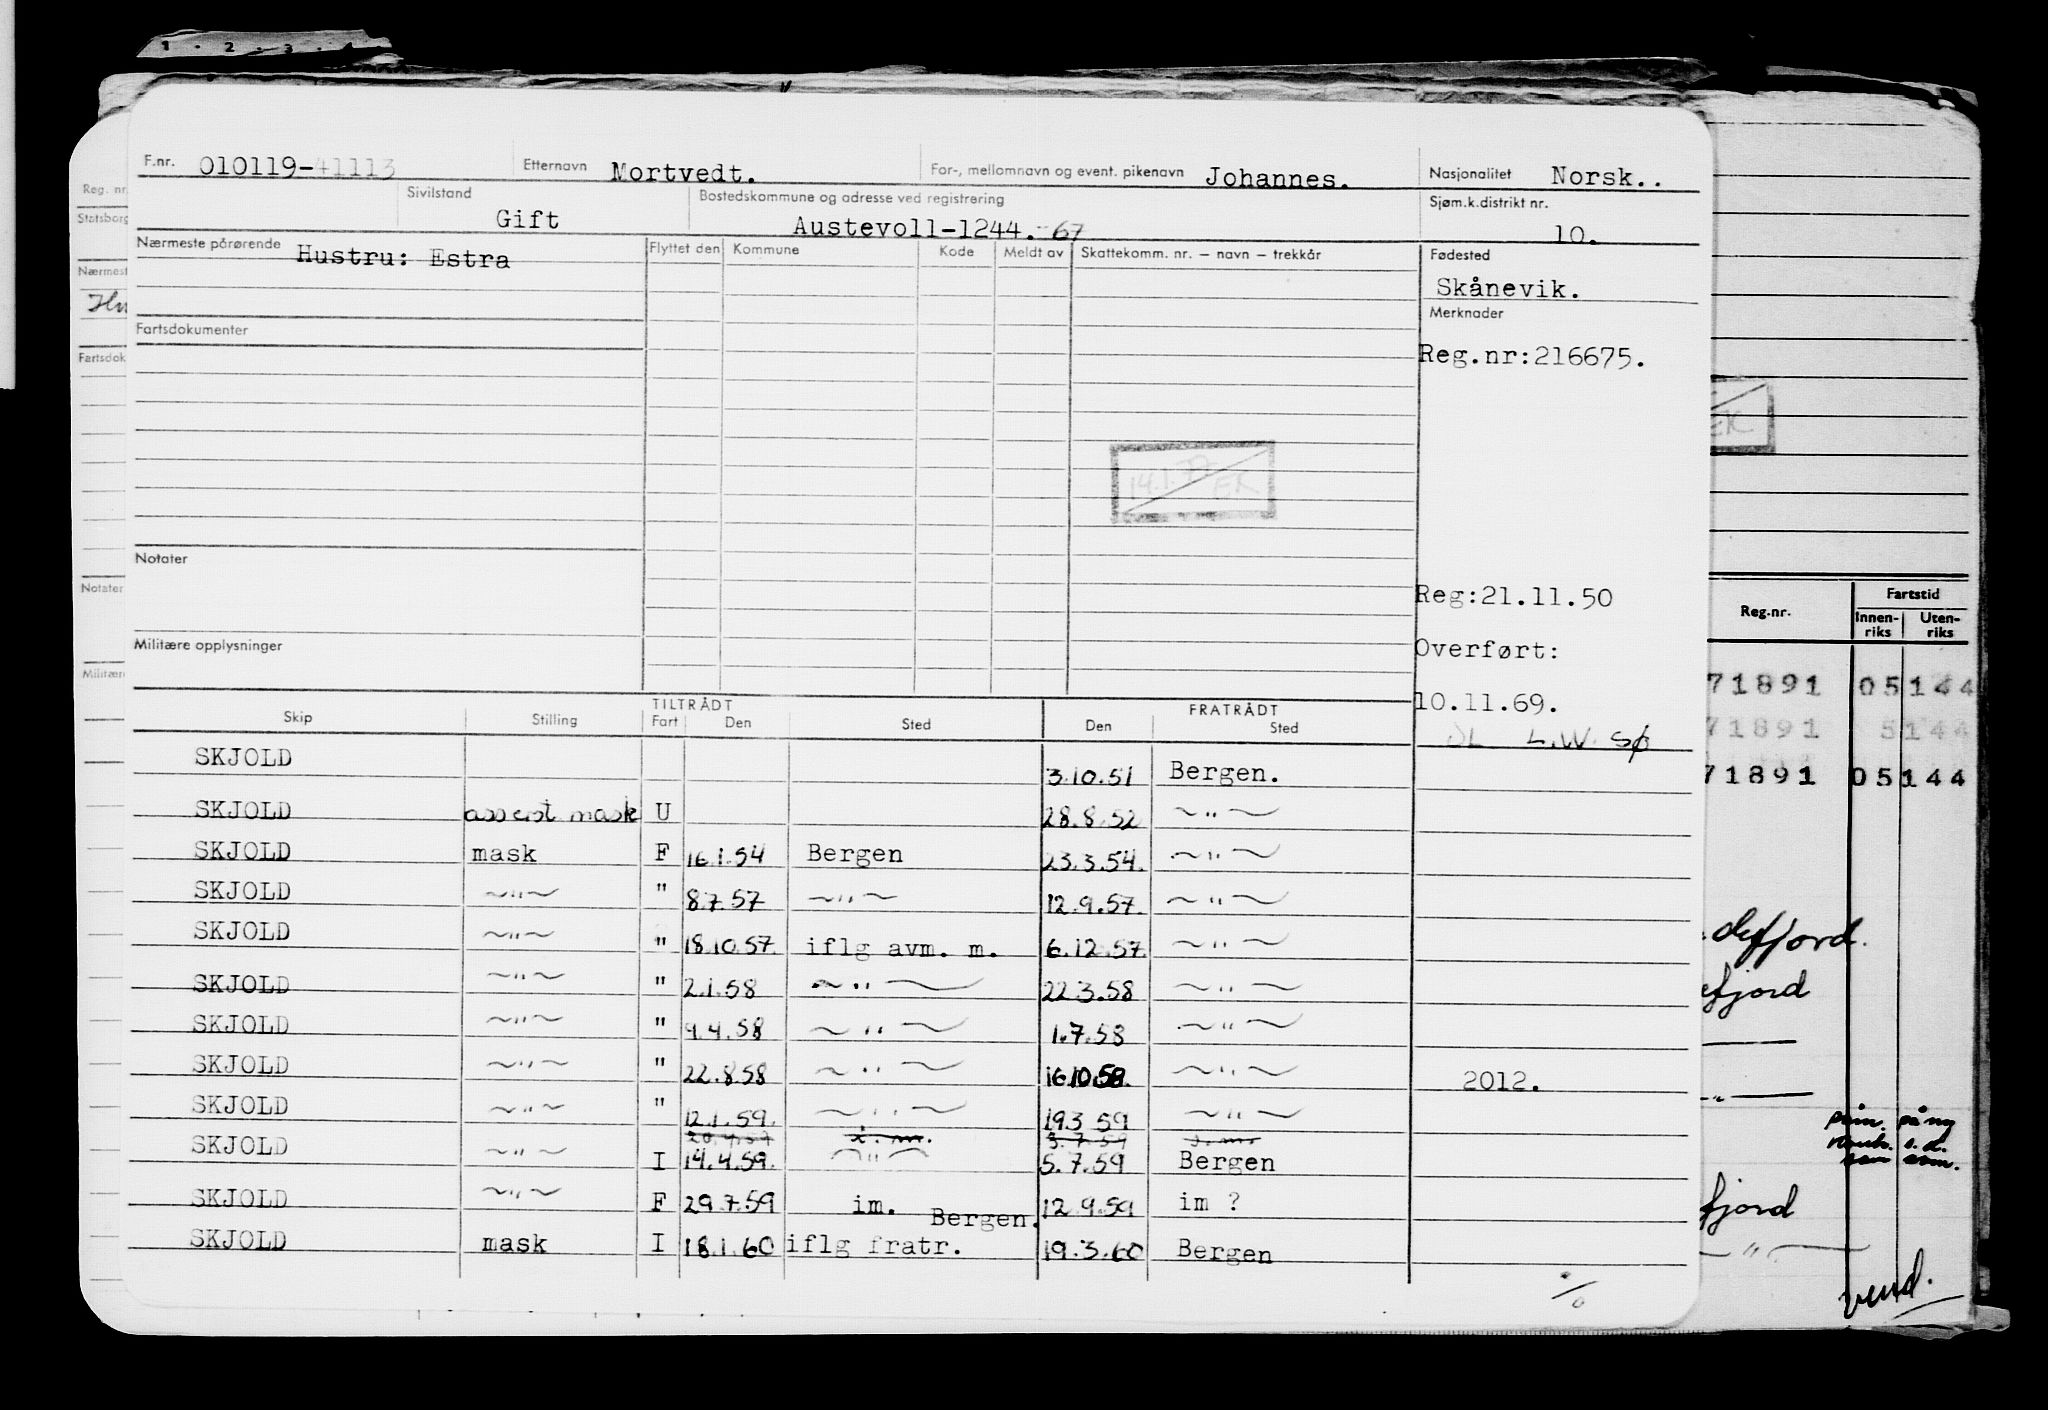 1 . 2 . 3 . 4
F.nr. 010119-41113 Etternavn Mortvedt. For-, mellomnavn og event. pikenavn Johannes. Nasjonalitet Norsk..
Sivilstand Gift Bostedskommune og adresse ved registrering Austevoll-1244.-67 Sjøm.k.distrikt nr. 10.
Nærmeste pårørende Hustru: Estra Flyttet den Kommune Kode Meldt av Skattekomm. nr. – navn – trekkår Fødested
Skånevik.
Merknader
Fartsdokumenter
Reg.nr:216675.
14.1.77 EK
Notater
Reg:21.11.50
Militære opplysninger
Overført:
10.11.69.
L.W. sø
TILTRÅDT FRATRÅDT
Skip Stilling Fart Den Sted Den Sted
SKJOLD 3.10.51 Bergen.
SKJOLD assist mask U 28.8.52 ~"~
SKJOLD mask F 16.1.54 Bergen 23.3.54. ~"~
SKJOLD ~"~ " 8.7.57 ~"~ 12.9.57. ~"~
SKJOLD ~"~ " 18.10.57. iflg avm. m. 6.12.57. ~"~
SKJOLD ~"~ " 2.1.58 ~"~ 22.3.58 ~"~
SKJOLD ~"~ " 9.4.58 ~"~ 1.7.58 ~"~
SKJOLD ~"~ " 22.8.58 ~"~ 16.10.58. ~"~ 2012.
SKJOLD ~"~ " 12.1.59. ~"~ 19.3 59 ~"~
SKJOLD ~"~ I 14.4.59. ~"~ 5.7.59 Bergen
SKJOLD ~"~ F 29.7.59 im. Bergen. 12.9.59 im ?
SKJOLD mask I 18.1.60 iflg fratr. 19.3.60 Bergen
Reg. nr
Statsborg
Nærmest
Hu
Fartsdok
Notater
Militære
EK
Reg.nr. Fartstid
Innen-riks Uten-riks
71891 05144
71891 5144
71891 05144
defjord.
efjord
~"~
på ny
fjord
~"~
vend.